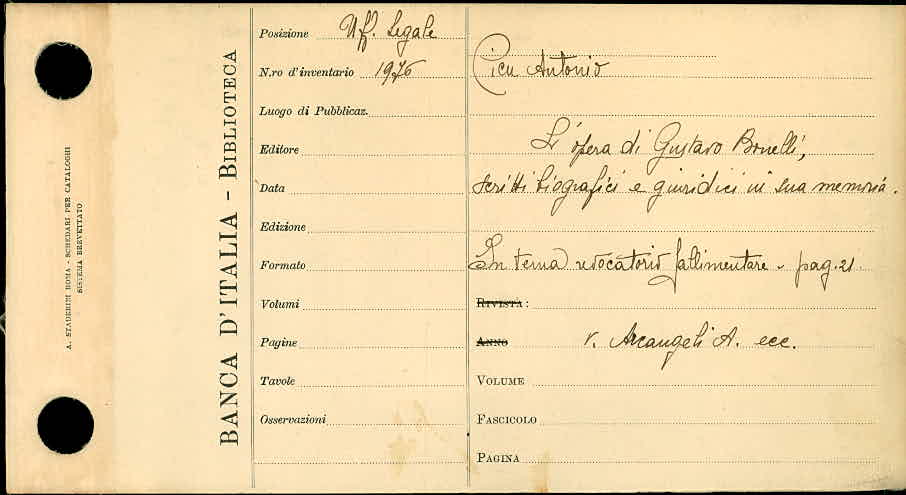 A. STADERINI ROMA - SCHEDARI PER CATALOGHI
SISTEMA BREVETTATO
BANCA D'ITALIA - BIBLIOTECA
Posizione Uff. Legale
N.ro d'inventario 1976
Luogo di Pubblicaz.
Editore
Data
Edizione
Formato
Volumi
Pagine
Tavole
Osservazioni
Cicu Antonio
L'opera di Gustavo Bonelli,
scritti biografici e giuridici in sua memoria.
In tema revocatorio fallimentare - pag. 21.
RIVISTA :
ANNO v. Arcangeli A. ecc.
VOLUME
FASCICOLO
PAGINA